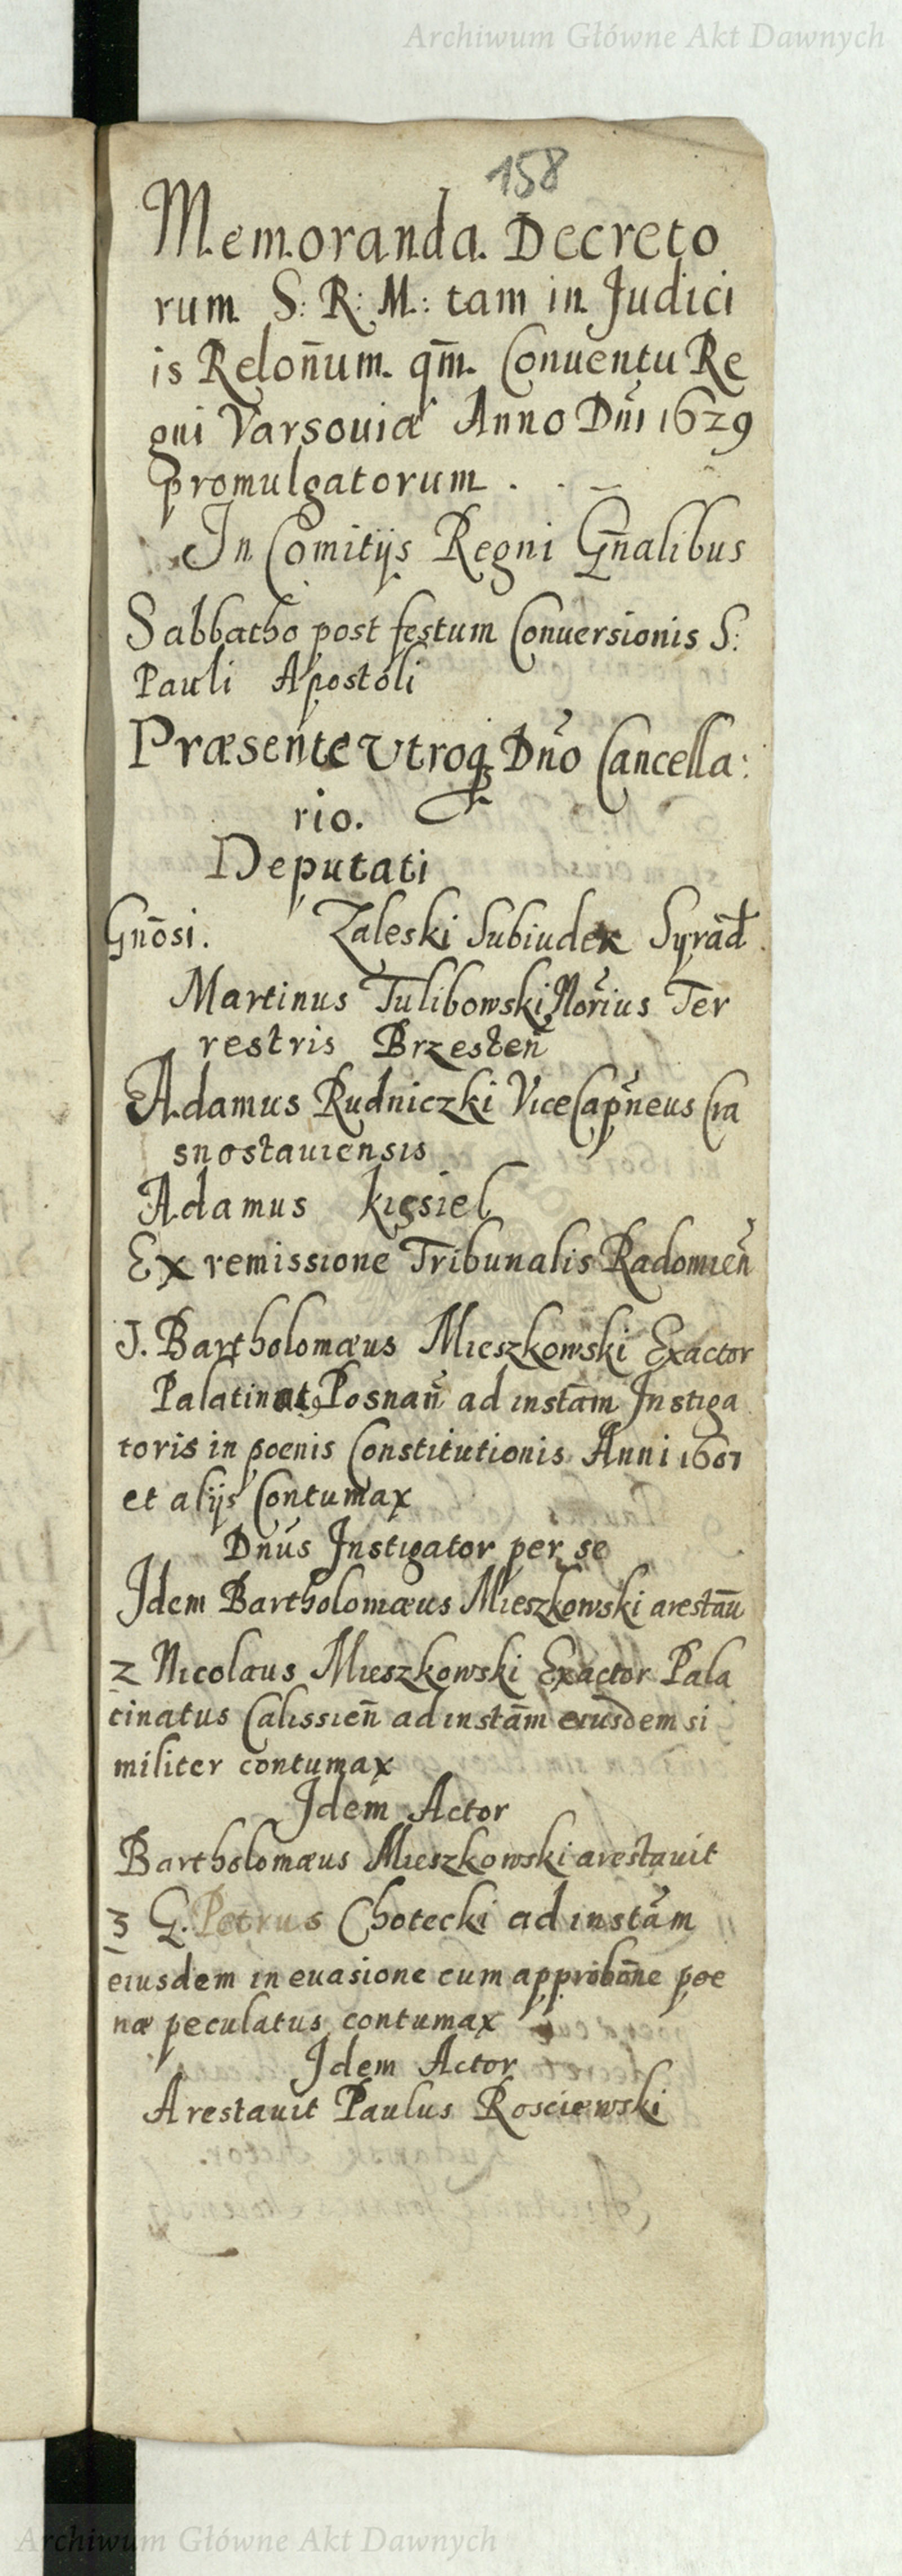 Archiwum Główne Akt Dawnych
158
Memoranda Decreto
rum S: R: M: tam in Judici
is Relon̄um qm̄ Conventu Re
gni Varsoviæ Anno Dn̄i 1629
promulgatorum . . –
In Comitijs Regni Gn̄alibus
Sabbatho post festum Conversionis S:
Pauli Apostoli
Præsente Utroq Dn̄o Cancella:
rio.
Deputati
Gn̄osi. Zaleski Subiudex Syrad
Martinus Tulibowski Norius Ter
restris Brzesten̄
Adamus Rudniczki ViceCapn̄eus Cra
snostauiensis
Adamus Kisiel
Ex remissione Tribunalis Radomien̄
J. Bartholomæus Mieszkowski Exactor
Palatinat9 Posnan̄ ad instam̄ Instiga
toris in poenis Constitutionis Anni 1601
et alijs Contumax
Dn̄us Instigator per se
Idem Bartholomæus Mieszkowski arestau̅
2 Nicolaus Mieszkowski Exactor Pala
tinatus Calissien̄ ad instam̄ eiusdem si
militer contumax
Idem Actor
Bartholomæus Mieszkowski arestauit
3 G. Petrus Chotecki ad instam̄
eiusdem in euasione cum approban̄e poe
næ peculatus contumax
Idem Actor
Arestauit Paulus Rosciewski
Archiwum Główne Akt Dawnych